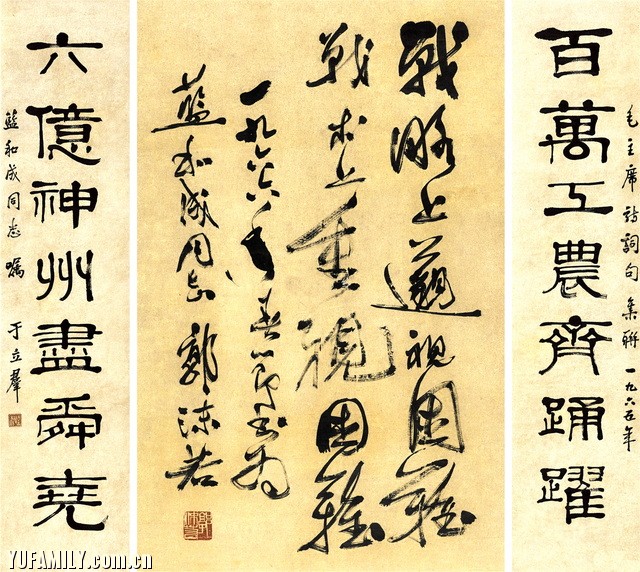 毛主席詩詞句集聯 一九六五年
百萬工農齊踴躍
戰略上藐視困難
戰术上重視困難
一九六六年春節書為
藍和成同志 郭沫若
六億神州盡舜堯
藍和成同志囑 于立羣
YUFAMILY.com.cn